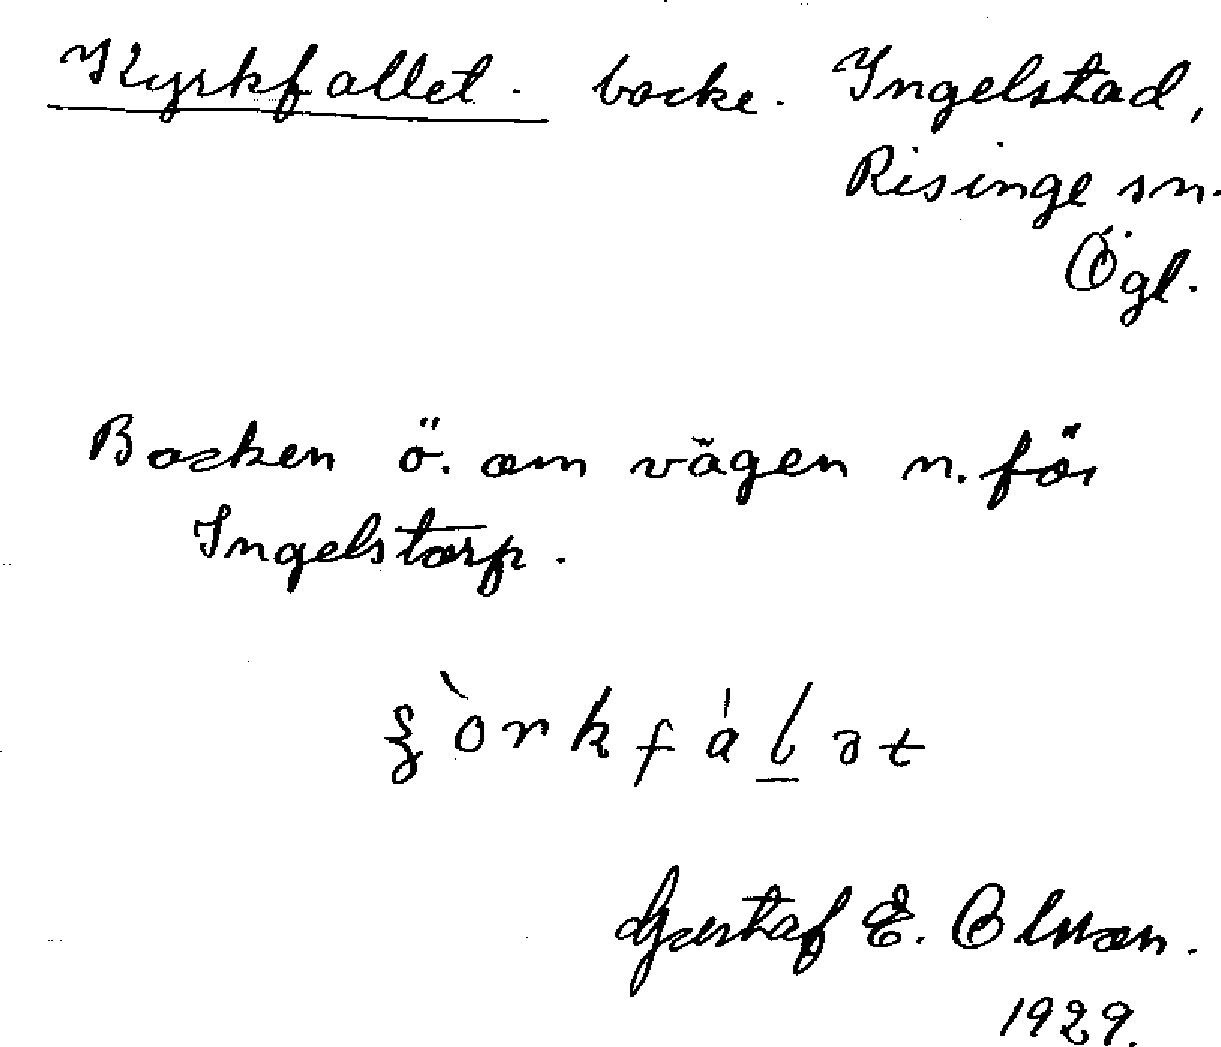 Kyrkfallet. backe. Ingelstad,
Risinge sn.
Ögl.
Backen ö. om vägen n. för
Ingelstorp.
Gustaf E. Olsson.
1929.